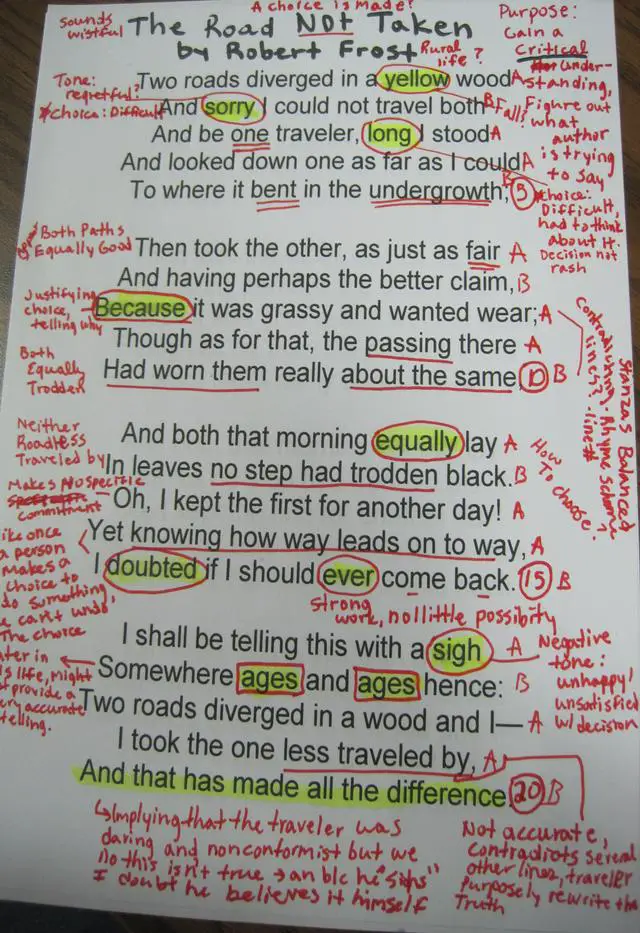 A choice is made!
sounds
wistful
The Road Not Taken
by Robert Frost
Rural
life?
Purpose:
Gain a
Critical
Under-
standing,
Figure out
what
author
is trying
to say
Tone:
regretful?
*Choice: Difficult
Two roads diverged in a yellow wood A
Fall?
And sorry I could not travel both B
And be one traveler, long I stood A
And looked down one as far as I could A
To where it bent in the undergrowth; 5 B
*choice:
Difficult,
had to think
about it.
Decision not
rash
Both Paths
Equally Good
Then took the other, as just as fair A
And having perhaps the better claim, B
Justifying
choice,
telling why
Because it was grassy and wanted wear; A
Though as for that, the passing there A
Both
Equally
Trodden
Had worn them really about the same, 10 B
Contradicting
lines?
-Rhyme Scheme?
-line #
Stanzas Balanced
Neither
Road less
Traveled by
And both that morning equally lay A
In leaves no step had trodden black. B
How
To choose.
Makes No specific
commitment
Oh, I kept the first for another day! A
Yet knowing how way leads on to way, A
I doubted if I should ever come back. 15 B
like once
a person
Makes a
choice to
do something
can't undo
The choice
strong
work, no little possibity
I shall be telling this with a sigh A
Negative
tone:
unhappy!
unsatisfied
w/ decision
Somewhere ages and ages hence: B
life, might
provide a
accurate
telling.
Two roads diverged in a wood and I— A
I took the one less traveled by, A
And that has made all the difference 20 B
Implying that the traveler was
daring and nonconformist but we
this isn't true → an b/c he "sighs"
I doubt he believes it himself
Not accurate,
Contradicts several
other lines, traveler
Purposely rewrite the
Truth